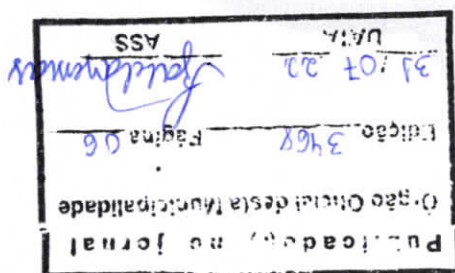 Publicado, no jornal
Órgão Oficial desta Municipalidade
Edição 3468 Página 06
31 / 07 22
DATA ASS